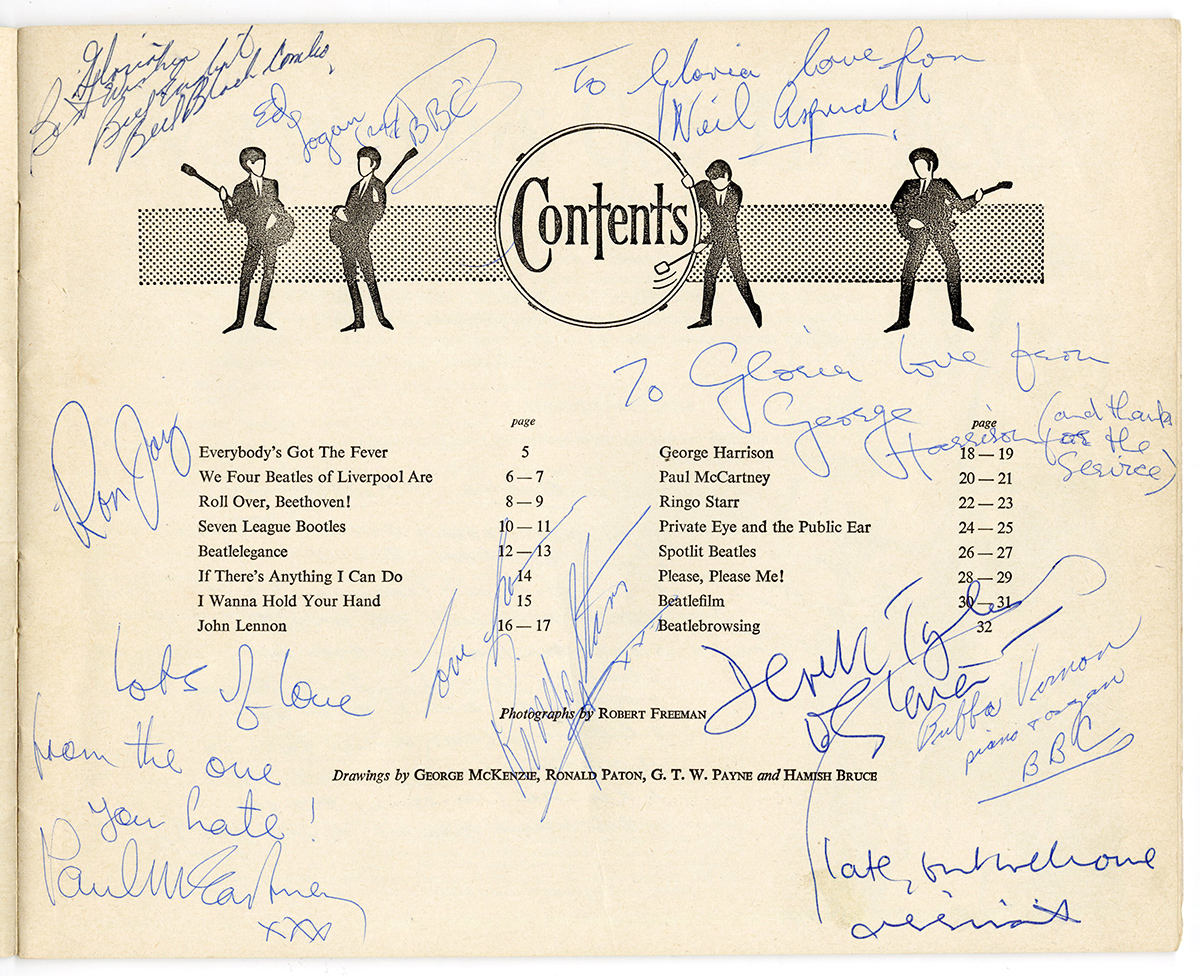 To Gloria love from
Neil Aspinall
Ed
Logan
BBC
Bill Black Combo
Contents
To Gloria love from
George
Harrison
(and thanks
for the
Service)
Ron Jay
page
Everybody's Got The Fever 5
We Four Beatles of Liverpool Are 6 — 7
Roll Over, Beethoven! 8 — 9
Seven League Bootles 10 — 11
Beatlelegance 12 — 13
If There's Anything I Can Do 14
I Wanna Hold Your Hand 15
John Lennon 16 — 17
page
George Harrison 18 — 19
Paul McCartney 20 — 21
Ringo Starr 22 — 23
Private Eye and the Public Ear 24 — 25
Spotlit Beatles 26 — 27
Please, Please Me! 28 — 29
Beatlefilm 30 — 31
Beatlebrowsing 32
Love from
Ringo Starr
xxx
Derek Taylor
Bubba Vernon
piano + organ
BBC
Photographs by ROBERT FREEMAN
Drawings by GEORGE MCKENZIE, RONALD PATON, G. T. W. PAYNE and HAMISH BRUCE
Lots of love
from the one
you hate!
Paul McCartney
xxx
late, but welcome